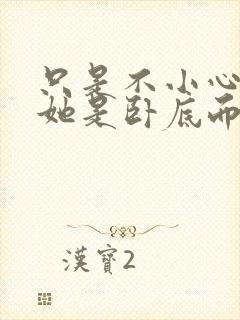 只是不小心
她是卧底而
漢寶2